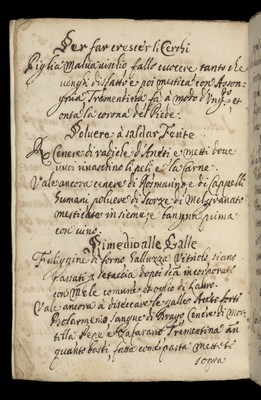 Per far crescer li Cerchi
Piglia Malva fallo cuocere tanto che
e poi mestica con
Trementina fà à modo d' et
onta la corona del Piede.
Polvere à saldar Ferite
Cenere di radiche d' Aneti e metti dove
vuoi li peli e la Carne
Vale ancora cenere di Rosmarino e di Cappelli
humani polvere di scorze di Melogranato
mesticate insieme e prima
con vino.
Rimedio alle Galle
Fuliggine di forno Galluzza Vitriolo siano
passati à setaccia dopoi sia incorporato
con Mele comune et oglio di Lauro.
Vale ancora à diseccar le galle Aceto forte
Bolarmenio Sangue di Drago Cenere di Mor-
tilla e Zafarano Trementina an
quanto basti fatta come pasta mettevi
sopra